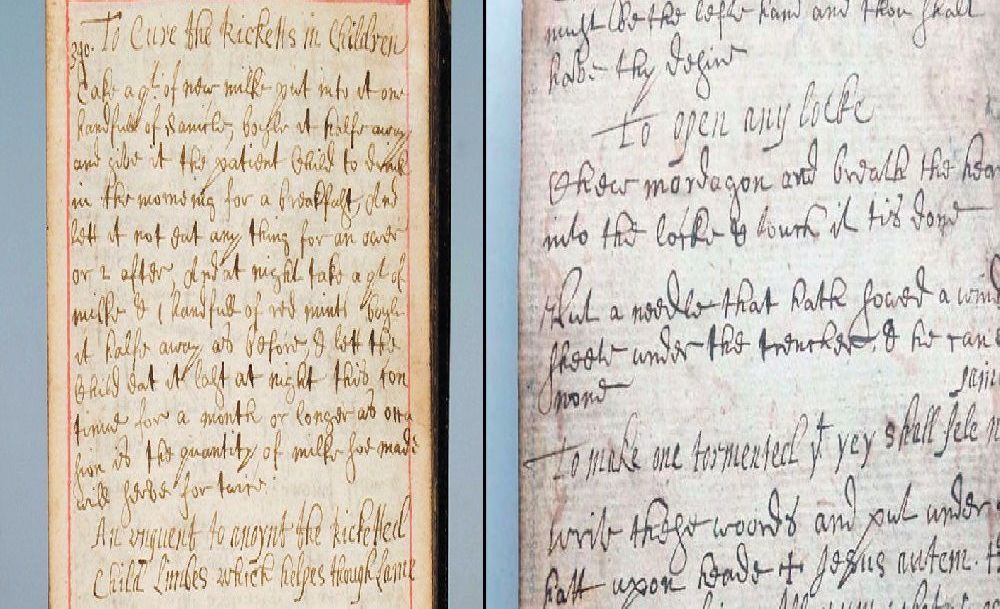 390. To Cure the Ricketts in Children
Take a pt of new milke put into it one
handfull of Sanicle, boyle it halfe away
and give it the patient Child to drink
in the morneing for a breakfast, And
lett it not eat any thing for an ower
or 2 after, And at night take a pt of
milke & 1 handfull of red mint boyle
it halfe away as before, & lett the
Child eat it last at night this con
tinue for a month or longer as occa
sion is the quantity of milke soe made
will serve for twice.
An unguent to anoynt the Ricketted
Child Limbes which helpes though Lame
must be the lefte hand and thou shalt
have thy desire
To open any locke
Chew mordagon and breath the
into the locke & touch it tis done
Put a needle that hath sowed a
sheete under the trencher, & he can
word
To make one tormented yt yey shall
write these woords and put under
hatt upon heade + Jesus autem